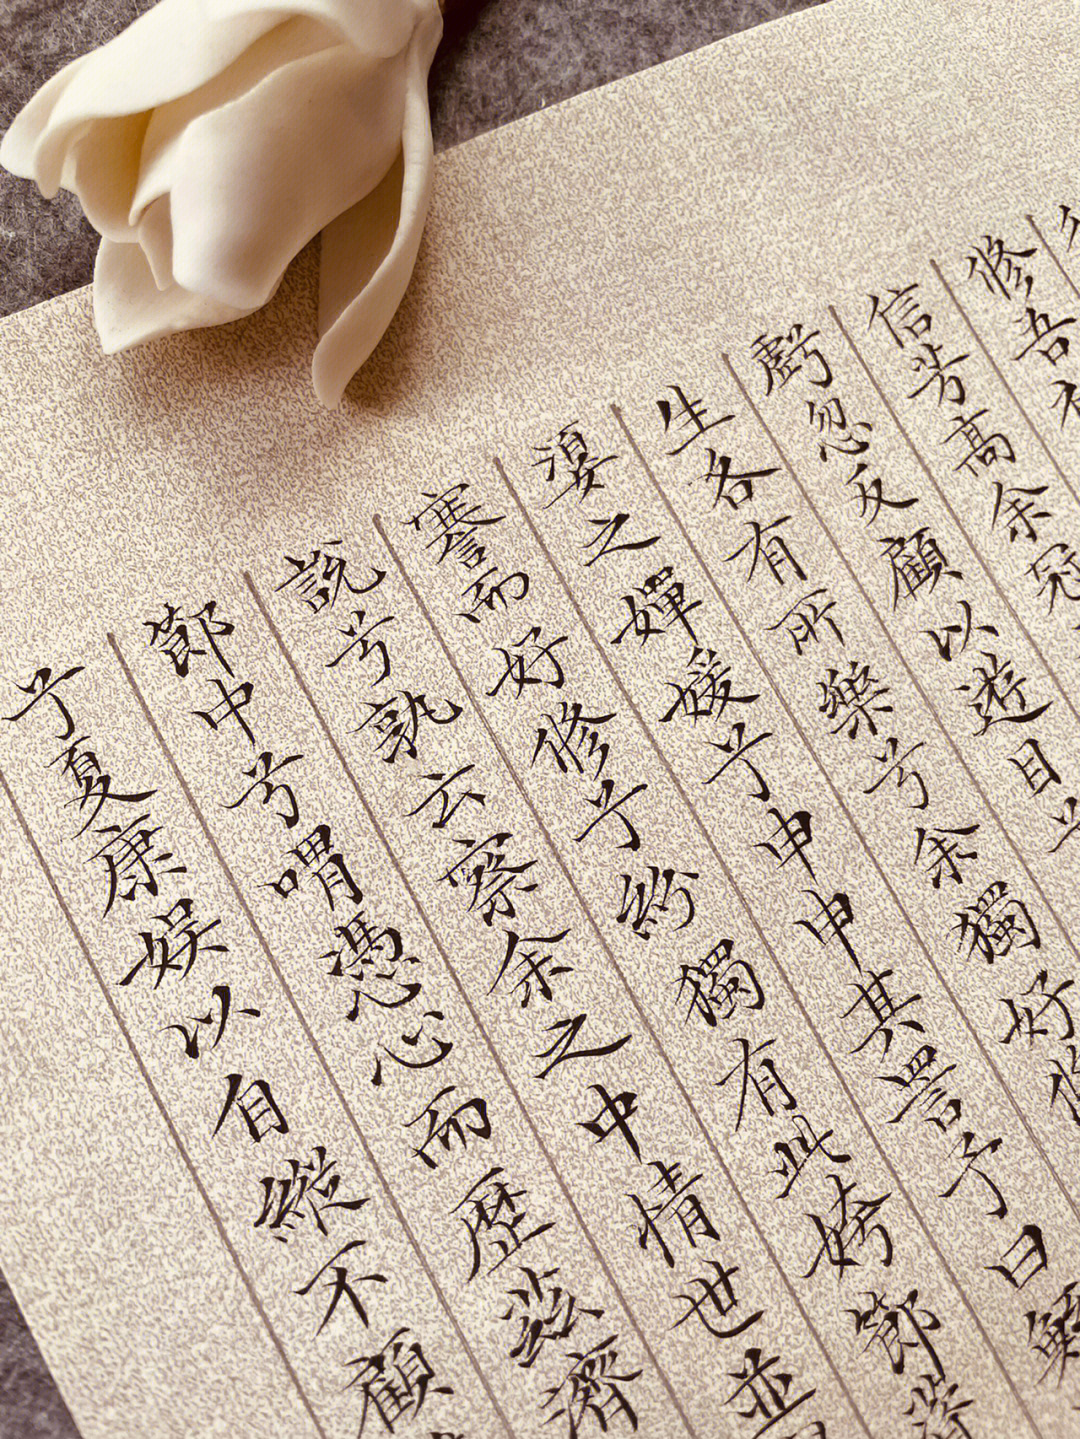 修吾
信芳高余冠
虧忽反顧以遊目兮
生各有所樂兮余獨好修
嬃之嬋媛兮申申其詈予曰鯀
謇而好修兮紛獨有此姱節
說兮孰云察余之中情世並
節中兮喟憑心而歷茲濟
兮夏康娛以自縱不顧